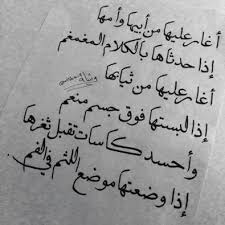 أغار عليها من أبيها وأمها
إذا حدثاها بالكلام المغمغم
أغار عليها من ثيابها
إذا لبستها فوق جسم منعم
وأحسد كاسات تقبل ثغرها
إذا وضعتها موضع اللثم في الفم